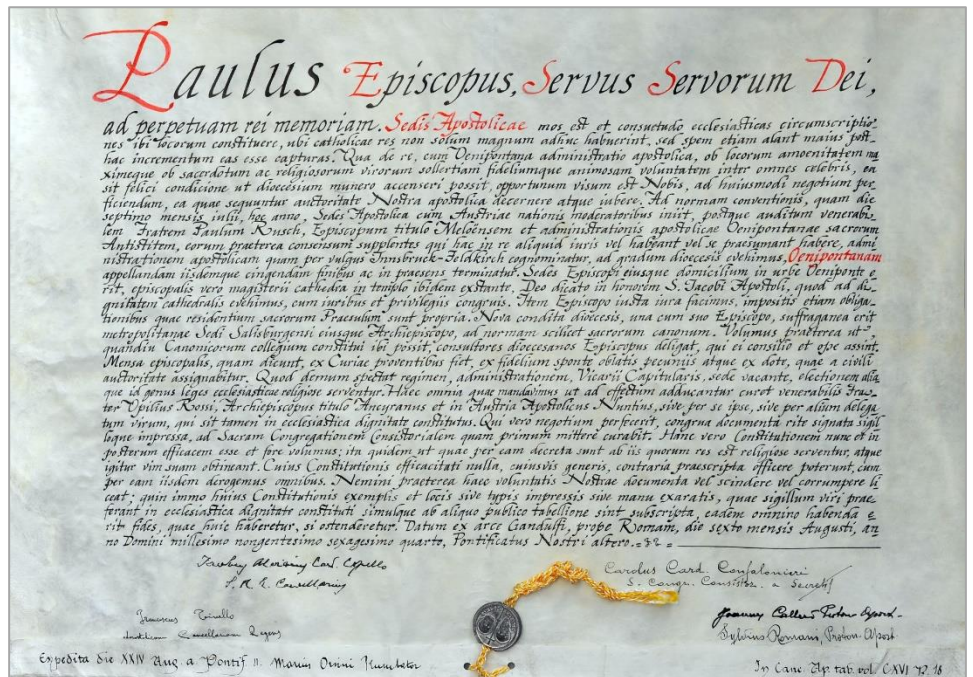 Paulus Episcopus, Servus Servorum Dei,
ad perpetuam rei memoriam. Sedis Apostolicae mos est et consuetudo ecclesiasticas circumscriptio-
nes ibi locorum constituere, ubi catholicae res non solum magnum adhuc habuerint, sed spem etiam alant maius post-
hac incrementum eas esse capturas. Qua de re, cum Oenipontana administratio apostolica, ob locorum amoenitatem ma
ximeque ob sacerdotum ac religiosorum virorum sollertiam fideliumque animosam voluntatem inter omnes celebris, ea
sit felici condicione ut dioecesium munero accenseri possit, opportunum visum est Nobis, ad huiusmodi negotium per
ficiendum, ea quae sequuntur auctoritate Nostra apostolica decernere atque iubere. Ad normam conventionis, quam die
septimo mensis iulii, hoc anno, Sedes Apostolica cum Austriae nationis moderatoribus iniit, postque auditum venerabi-
lem Fratrem Paulum Rusch, Episcopum titulo Meloënsem et administrationis apostolicae Oenipontanae sacrorum
Antistitem, eorum praeterea consensum supplentes qui hac in re aliquid iuris vel habeant vel se praesumant habere, admi
nistrationem apostolicam quam per vulgus Innsbruck-Feldkirch cognominatur, ad gradum dioecesis evehimus, Oenipontanam
appellandam iisdemque cingendam finibus ac in praesens terminatur. Sedes Episcopi eiusque domicilium in urbe Oeniponte e-
rit, episcopalis vero magisterii cathedra in templo ibidem exstante, Deo dicato in honorem S. Jacobi Apostoli, quod ad di-
gnitatem cathedralis evehimus, cum iuribus et privilegiis congruis. Item Episcopo iusta iura facimus, impositis etiam obliga-
tionibus quae residentium sacrorum Praesulum sunt propria. Nova condita dioecesis, una cum suo Episcopo, suffraganea erit
metropolitanae Sedi Salisburgensi eiusque Archiepiscopo, ad normam scilicet sacrorum canonum. Volumus praeterea ut
quandiu Canonicorum collegium constitui ibi possit, consultores dioecesanos Episcopus deligat, qui ei consilio et ope assint.
Mensa episcopalis, quam dicunt, ex Curiae proventibus fiet, ex fidelium sponte oblatis pecuniis atque ex dote, quae a civili
auctoritate assignabitur. Quod demum spectat regimen, administrationem, Vicarii Capitularis, sede vacante, electionem alia
que id genus leges ecclesiasticae religiose serventur. Haec omnia quae mandavimus ut ad effectum adducantur curet venerabilis Fra-
ter Opilius Rossi, Archiepiscopus titulo Ancyranus et in Austria Apostolicus Nuntius, sive per se ipse, sive per alium delega
tum virum, qui sit tamen in ecclesiastica dignitate constitutus. Qui vero negotium perfecerit, congrua documenta rite signata sigil
loque impressa, ad Sacram Congregationem Consistorialem quam primum mittere curabit. Hanc vero Constitutionem nunc et in
posterum efficacem esse et fore volumus; ita quidem ut quae per eam decreta sunt ab iis quorum res est religiose serventur, atque
igitur vim suam obtineant. Cuius Constitutionis efficacitati nulla, cuiusvis generis, contraria praescripta officere poterunt, cum
per eam iisdem derogemus omnibus. Nemini praeterea haec voluntatis Nostrae documenta vel scindere vel corrumpere li
ceat; quin immo huius Constitutionis exemplis et locis sive typis impressis sive manu exaratis, quae sigillum viri prae
ferant in ecclesiastica dignitate constituti simulque ab aliquo publico tabellione sint subscripta, eadem omnino habenda e
rit fides, quae huic haberetur, si ostenderetur. Datum ex arce Gandulfi, prope Romam, die sexto mensis Augusti, an
no Domini millesimo nongentesimo sexagesimo quarto, Pontificatus Nostri altero.
Aloisius Card. Copello
S. R. E. Cancellarius
Carolus Card. Confalonieri
S. Congr. Consistor. a Secretis
Franciscus Tinello
Cancellariam Regens
Sylvius Romani, Proton. Apost.
Expedita die XXIV Aug. a Pontif. II. Marius Orsini
In Canc. Ap. tab. vol. CXVI n. 18